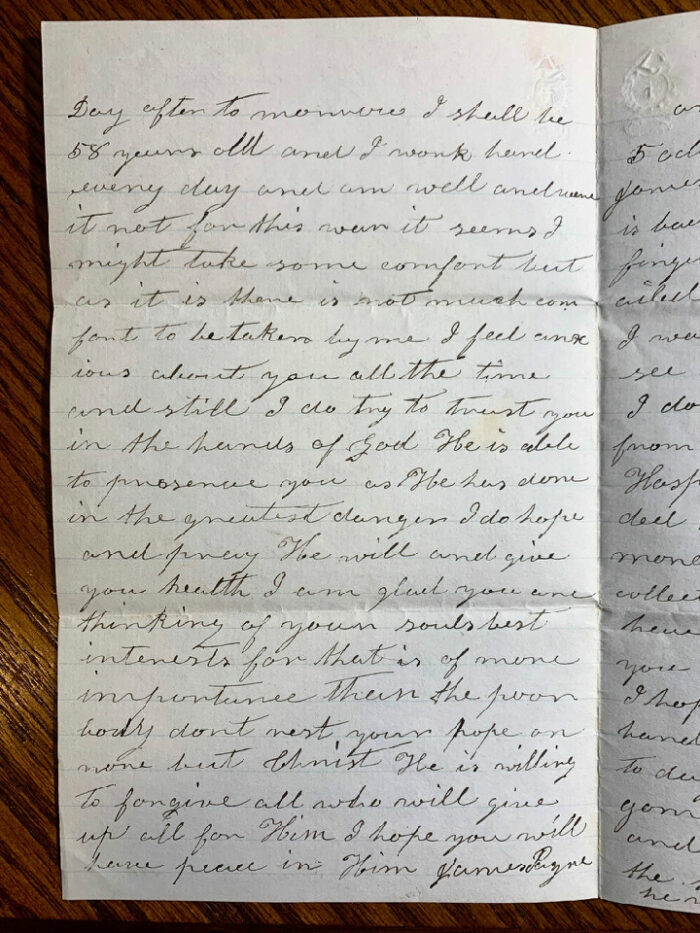 Day after to morrow I shall be
58 years old and I work hard
every day and am well and were
it not for this war it seems I
might take some comfort but
as it is there is not much com
fort to be taken by me I feel anx
ious about you all the time
and still I do try to trust you
in the hands of God He is able
to preserve you as He has done
in the greatest danger I do hope
and pray He will and give
you health I am glad you are
thinking of your souls best
interests for that is of more
importance than the poor
body dont rest your hope on
none but Christ He is willing
to forgive all who will give
up all for Him I hope you will
have peace in Him James Payne
James
is
I
see
I do
from
have
you
I
hand
and
the